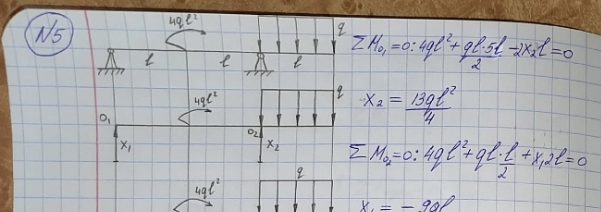 N5
4ql²
q
l l l
ΣM₀₁=0: 4ql²+ql·5l/2-2x₂l=0
4ql²
q
O₁ O₂
x₁ x₂
x₂ = 13ql²/4
ΣM₀₂=0: 4ql²+ql·l/2+x₁2l=0
4ql²
q
x₁ = - 9ql